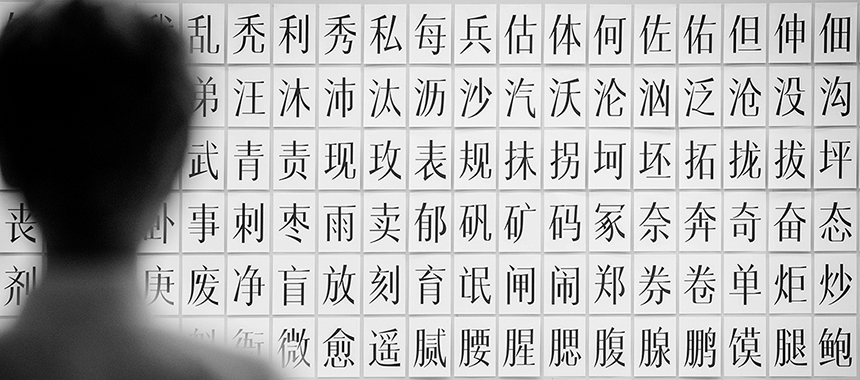 乱秃利秀私每兵估体何佐佑但伸佃
弟汪沐沛汰沥沙汽沃沦汹泛沧没沟
武青责现玫表规抹拐坷坯拓拢拔坪
丧卧事刺枣雨卖郁矾矿码冢奈奔奇奋态
剂庚废净盲放刻育氓闸闹郑券卷单炬炒
微愈遥腻腰腥腮腹腺鹏馍腿鲍